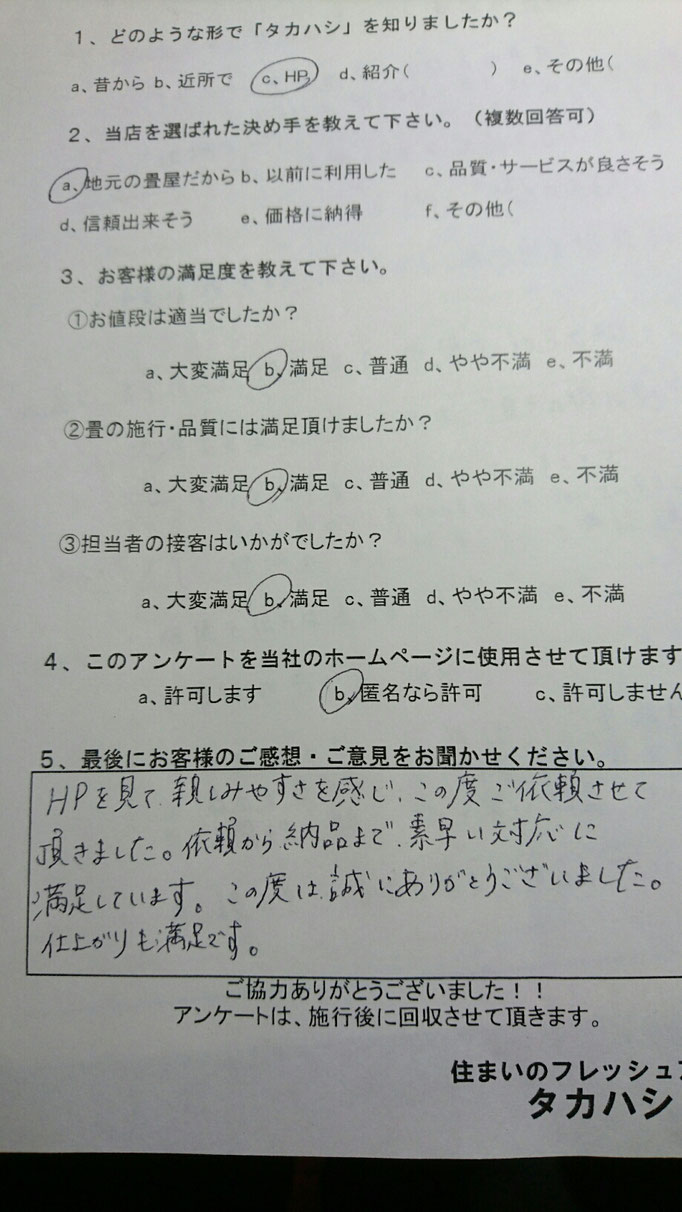 1、どのような形で「タカハシ」を知りましたか？
a、昔から b、近所で c、HP d、紹介（ ） e、その他（
2、当店を選ばれた決め手を教えて下さい。（複数回答可）
a、地元の畳屋だから b、以前に利用した c、品質・サービスが良さそう
d、信頼出来そう e、価格に納得 f、その他（
3、お客様の満足度を教えて下さい。
①お値段は適当でしたか？
a、大変満足 b、満足 c、普通 d、やや不満 e、不満
②畳の施行・品質には満足頂けましたか？
a、大変満足 b、満足 c、普通 d、やや不満 e、不満
③担当者の接客はいかがでしたか？
a、大変満足 b、満足 c、普通 d、やや不満 e、不満
4、このアンケートを当社のホームページに使用させて頂けます
a、許可します b、匿名なら許可 c、許可しません
5、最後にお客様のご感想・ご意見をお聞かせください。
HPを見て、親しみやすさを感じ、この度ご依頼させて
頂きました。依頼から納品まで、素早い対応に
満足しています。この度は、誠にありがとうございました。
仕上がりも満足です。
ご協力ありがとうございました！！
アンケートは、施行後に回収させて頂きます。
住まいのフレッシュ
タカハシ